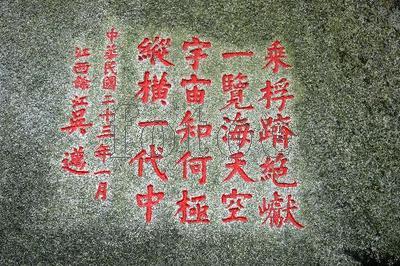 乘桴躋絕巘
一覽海天空
宇宙知何極
縱橫一代中
中華民國二十三年一月
江西臨江吳邁